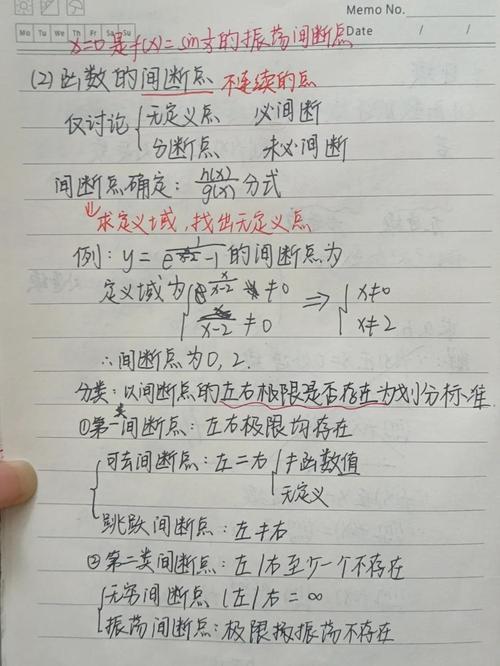 Memo No.
Mo Tu We Th Fr Sa Su
Date / /
x=0是f(x)=sin1/x的振荡间断点
(2)函数的间断点 不连续的点
仅讨论{无定义点 必间断
分断点 未必间断
间断点确定:h(x)/g(x)分式
⇓求定义域,找出无定义点
例:y=1/(e^(x/(x-2))-1)的间断点为
定义域为{e^(x/(x-2)) ≠0 ⇒ {x≠0
x-2≠0 x≠2
∴间断点为0,2.
分类:以间断点的左右极限是否存在为划分标准.
①第一类间断点:左右极限均存在
{可去间断点:左=右{≠函数值
无定义
跳跃间断点:左≠右
②第二类间断点:左/右至少一个不存在
{无穷间断点(左/右=∞
振荡间断点:极限振振荡不存在